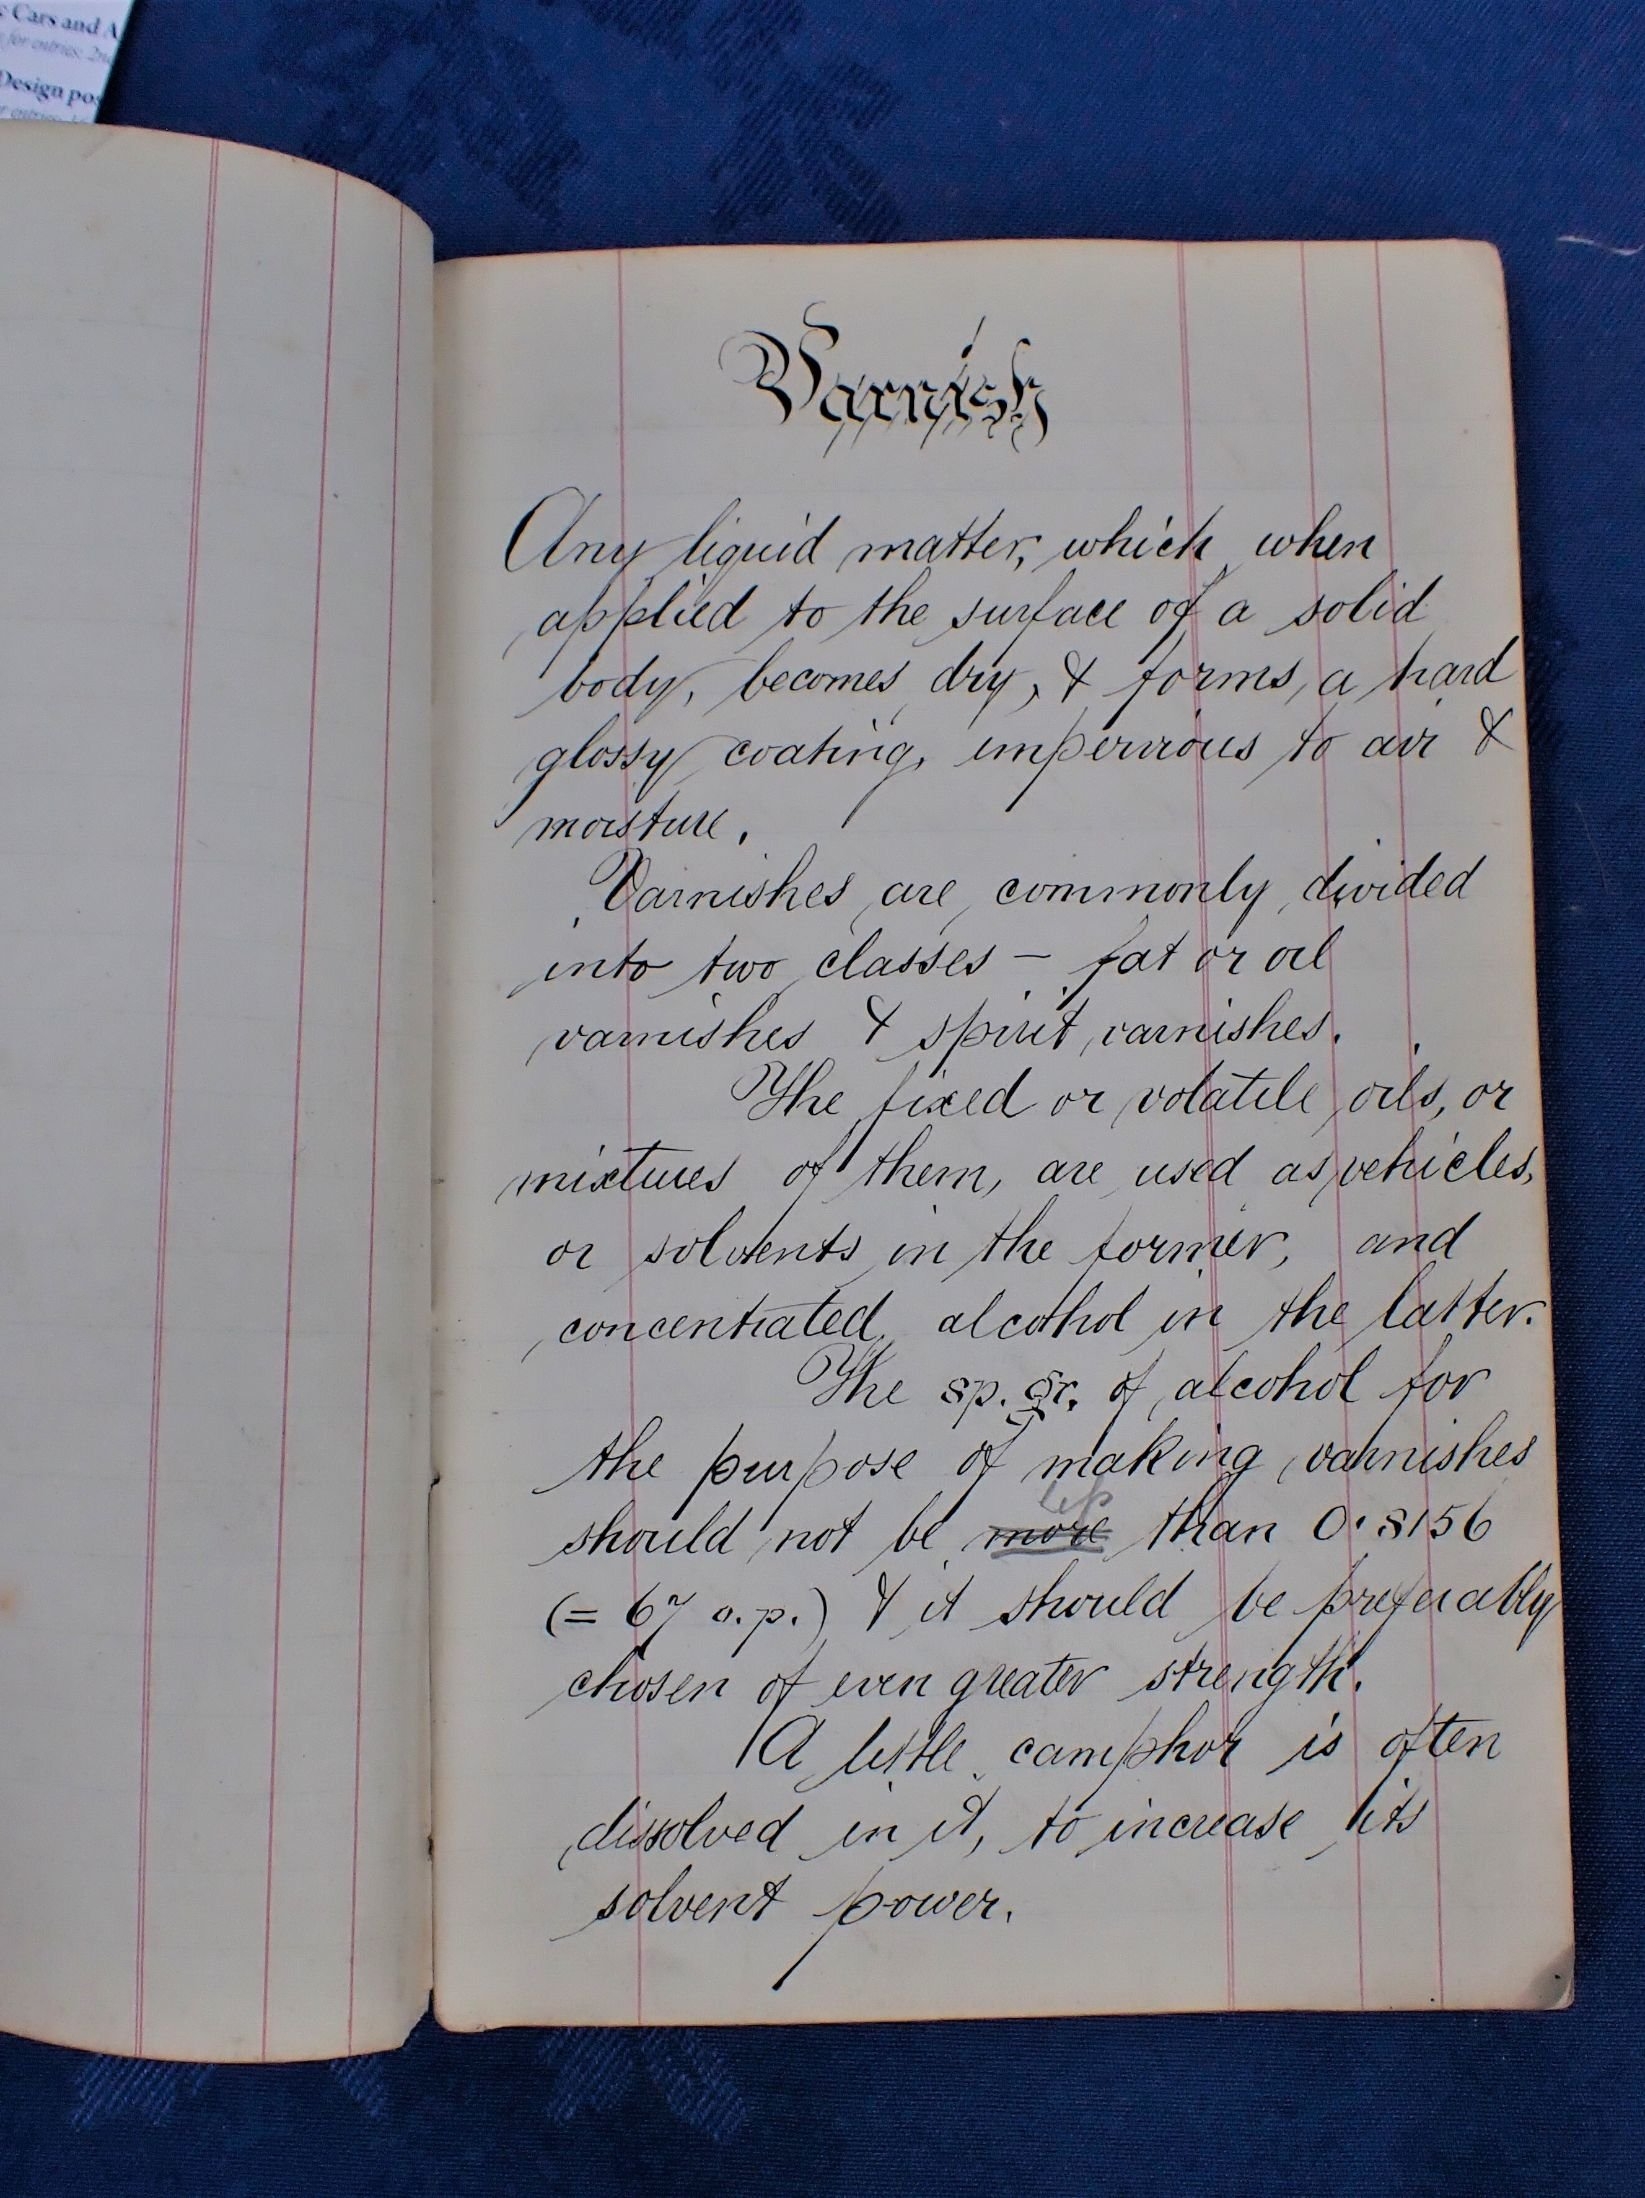 Cars and A
for entries: 2nd
Design pos
Varnish
Any liquid matter, which when
applied to the surface of a solid
body, becomes dry, & forms a hard
glossy coating, impervious to air &
moisture.
Varnishes are commonly divided
into two classes — fat or oil
varnishes & spirit varnishes.
The fixed or volatile oils, or
mixtures of them, are used as vehicles,
or solvents in the former, and
concentrated alcohol in the latter.
The sp. gr. of alcohol for
the purpose of making varnishes
less
should not be more than 0.8156
(= 67 o.p.) & it should be preferably
chosen of even greater strength.
A little camphor is often
dissolved in it, to increase its
solvent power.